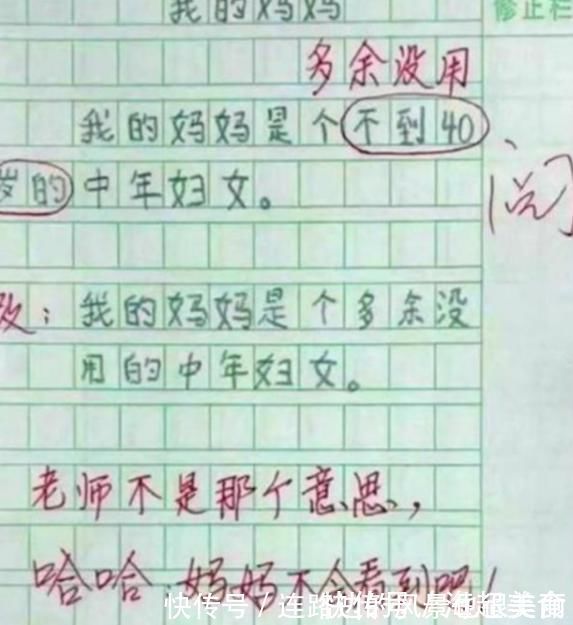 我的妈妈
修正栏
多余没用
我的妈妈是个不到40
岁的中年妇女。
阅
改：我的妈妈是个多余没
用的中年妇女。
老师不是那个意思，
哈哈，妈妈不会看到吧！
快传号／连路过的风景